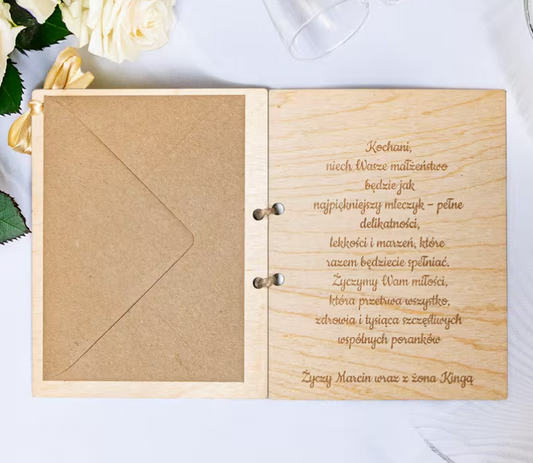 Kochani,
niech Wasze małżeństwo
będzie jak
najpiękniejszy mleczyk – pełne
delikatności,
lekkości i marzeń, które
razem będziecie spełniać.
Życzymy Wam miłości,
która przetrwa wszystko,
zdrowia i tysiąca szczęśliwych
wspólnych poranków
Życzy Marcin wraz z żona Kingą